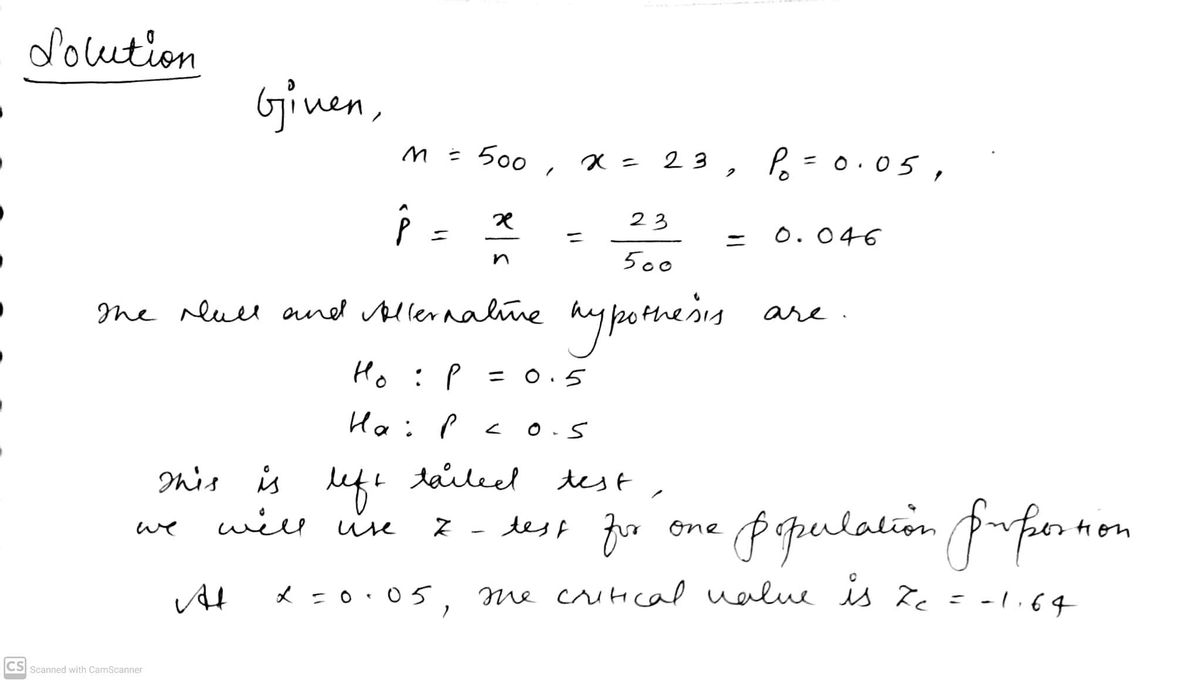 Solution
Given,
n = 500, x = 23, P₀ = 0.05,
p̂ = x/n = 23/500 = 0.046
The Null and Alternative hypothesis are.
H₀ : P = 0.5
Hα : P < 0.5
This is left tailed test,
we will use z - test for one population proportion
At α = 0.05, the critical value is Zc = -1.64
CS Scanned with CamScanner